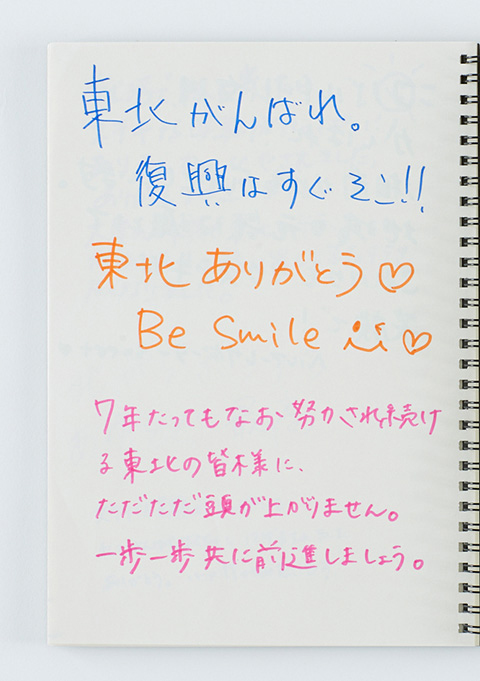 東北がんばれ。
復興はすぐそこ!!
東北ありがとう♡
Be Smile ♡
7年たってもなお努力され続け
る東北の皆様に、
ただただ頭が上がりません。
一歩一歩共に前進しましょう。